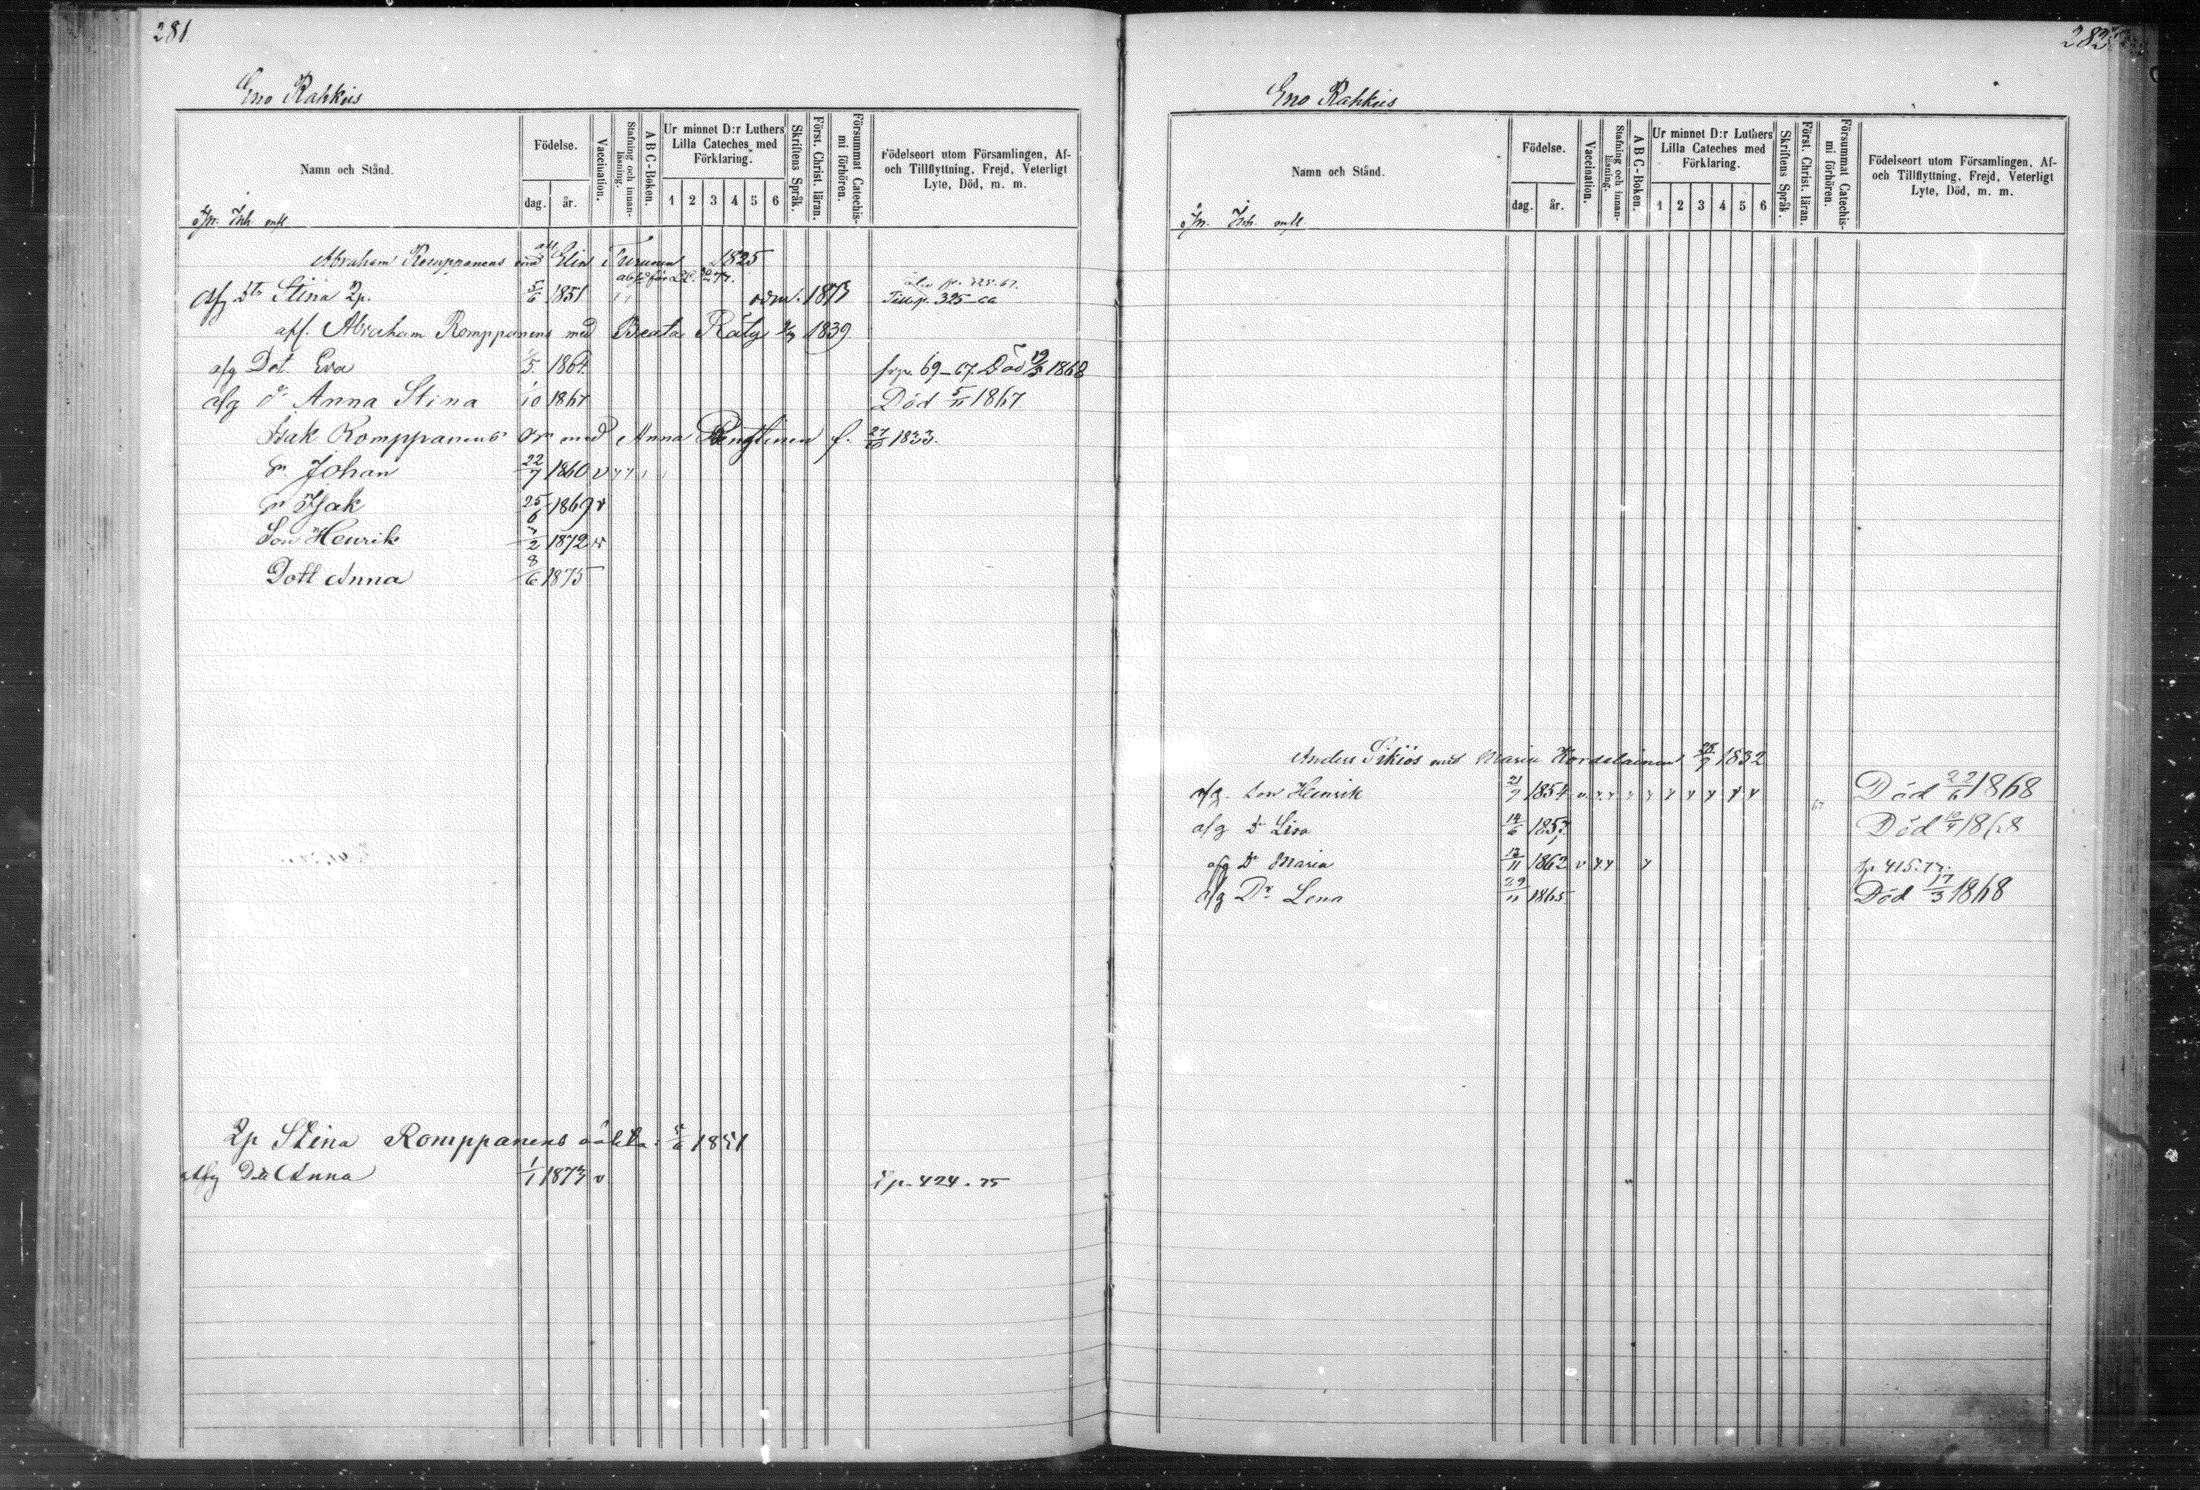 281
Eno Rahkiis
Namn och Stånd.
Födelse.
dag. år.
Vaccination.
Stafning och innan-läsning.
A B C-Boken.
Ur minnet D:r Luthers
Lilla Cateches med
Förklaring.
1 2 3 4 5 6
Skriftens Språk.
Först. Christ. läran.
Försummat Catechis-
mi förhören.
Födelseort utom Församlingen, Af-
och Tillflyttning, Frejd, Veterligt
Lyte, Död, m. m.
Abraham Romppanens med Elin Turunen 1825
afg Stina 2p. 5/6 1851 1873 p. 325
aff. Abraham Romppanens med Beata Räty 1839
afg Dot Eva 5 1864 69-67. Död 19/5 1868
afg Dr Anna Stina 1/10 1867 Död 5/11 1867
Isak Romppanens or med Anna f. 27 1833.
Johan 22/7 1860 v
Isak 25/6 1869 v
Son Henrik 7/2 1872 v
Dott Anna 8/6 1875
2p Stina Romppanens oäkta 5/6 1851
afg Dot Anna 1/1 1873 v p. 424. 75
282
Eno Rahkiis
Namn och Stånd.
Födelse.
dag. år.
Vaccination.
Stafning och innan-läsning.
A B C-Boken.
Ur minnet D:r Luthers
Lilla Cateches med
Förklaring.
1 2 3 4 5 6
Skriftens Språk.
Först. Christ. läran.
Försummat Catechis-
mi förhören.
Födelseort utom Församlingen, Af-
och Tillflyttning, Frejd, Veterligt
Lyte, Död, m. m.
Anders Sikiös med Maria 28/9 1832
afg. Son Henrik 21/7 1854 Död 22/6 1868
afg Dr Lisa 14/6 1857 Död 1868
afg Dr Maria 13/11 1862 v p 415.77.
afg Dr Lena 29/11 1865 Död 17/3 1868